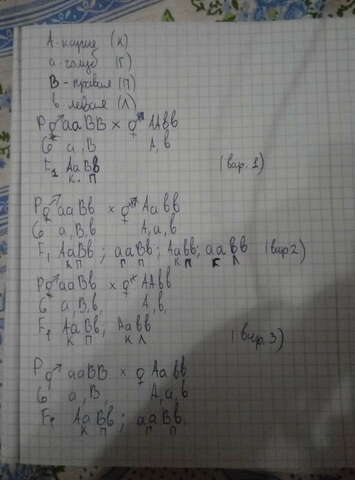 А - карие (К)
а - голуб (Г)
В - правая (П)
в левая (Л)
P ♂ aaBB × ♀ AAвв
G a, B A, в
F₁ AaBв (вар. 1)
К. П
P ♂ aaBв × ♀ Aaвв
G a, B, в A, a, в
F₁ AaBв; aaBв; Aaвв; aaвв (вар 2)
К П Г П К Л Г Л
P ♂ aaBв × ♀ AAвв
G a, B, в, A, в,
F₁ AaBв; Aaвв
К П К Л (вар. 3)
P ♂ aaBB × ♀ Aaвв
G a, B, A, a, в
F₁ AaBв; aaBв.
К П Г П